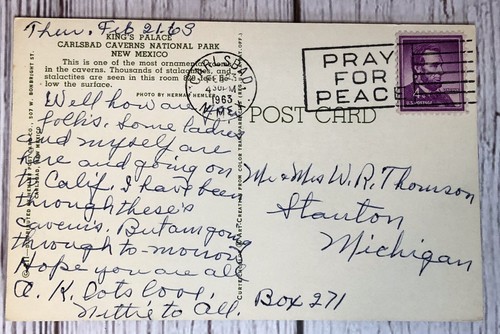 Thur. Feb 21-63
KING'S PALACE
CARLSBAD CAVERNS NATIONAL PARK
NEW MEXICO
This is one of the most ornamental rooms
in the caverns. Thousands of stalagmites and
stalactites are seen in this room 829 feet be-
low the surface.
PHOTO BY HERMAN HEMLER
Well how are you
folks. Some ladies
and myself are
here and going on
to Calif. I have been
through these's
Caverns. But am going
through to-morrow
Hope you are all
O.K. Lots love,
Nettie to All.
CARLSBAD
430 PM
1963
N. MEX.
PRAY
FOR
PEACE
4¢ U.S. POSTAGE
POST CARD
Mr & Mrs W. R. Thomson
Stanton
Michigan
Box 271